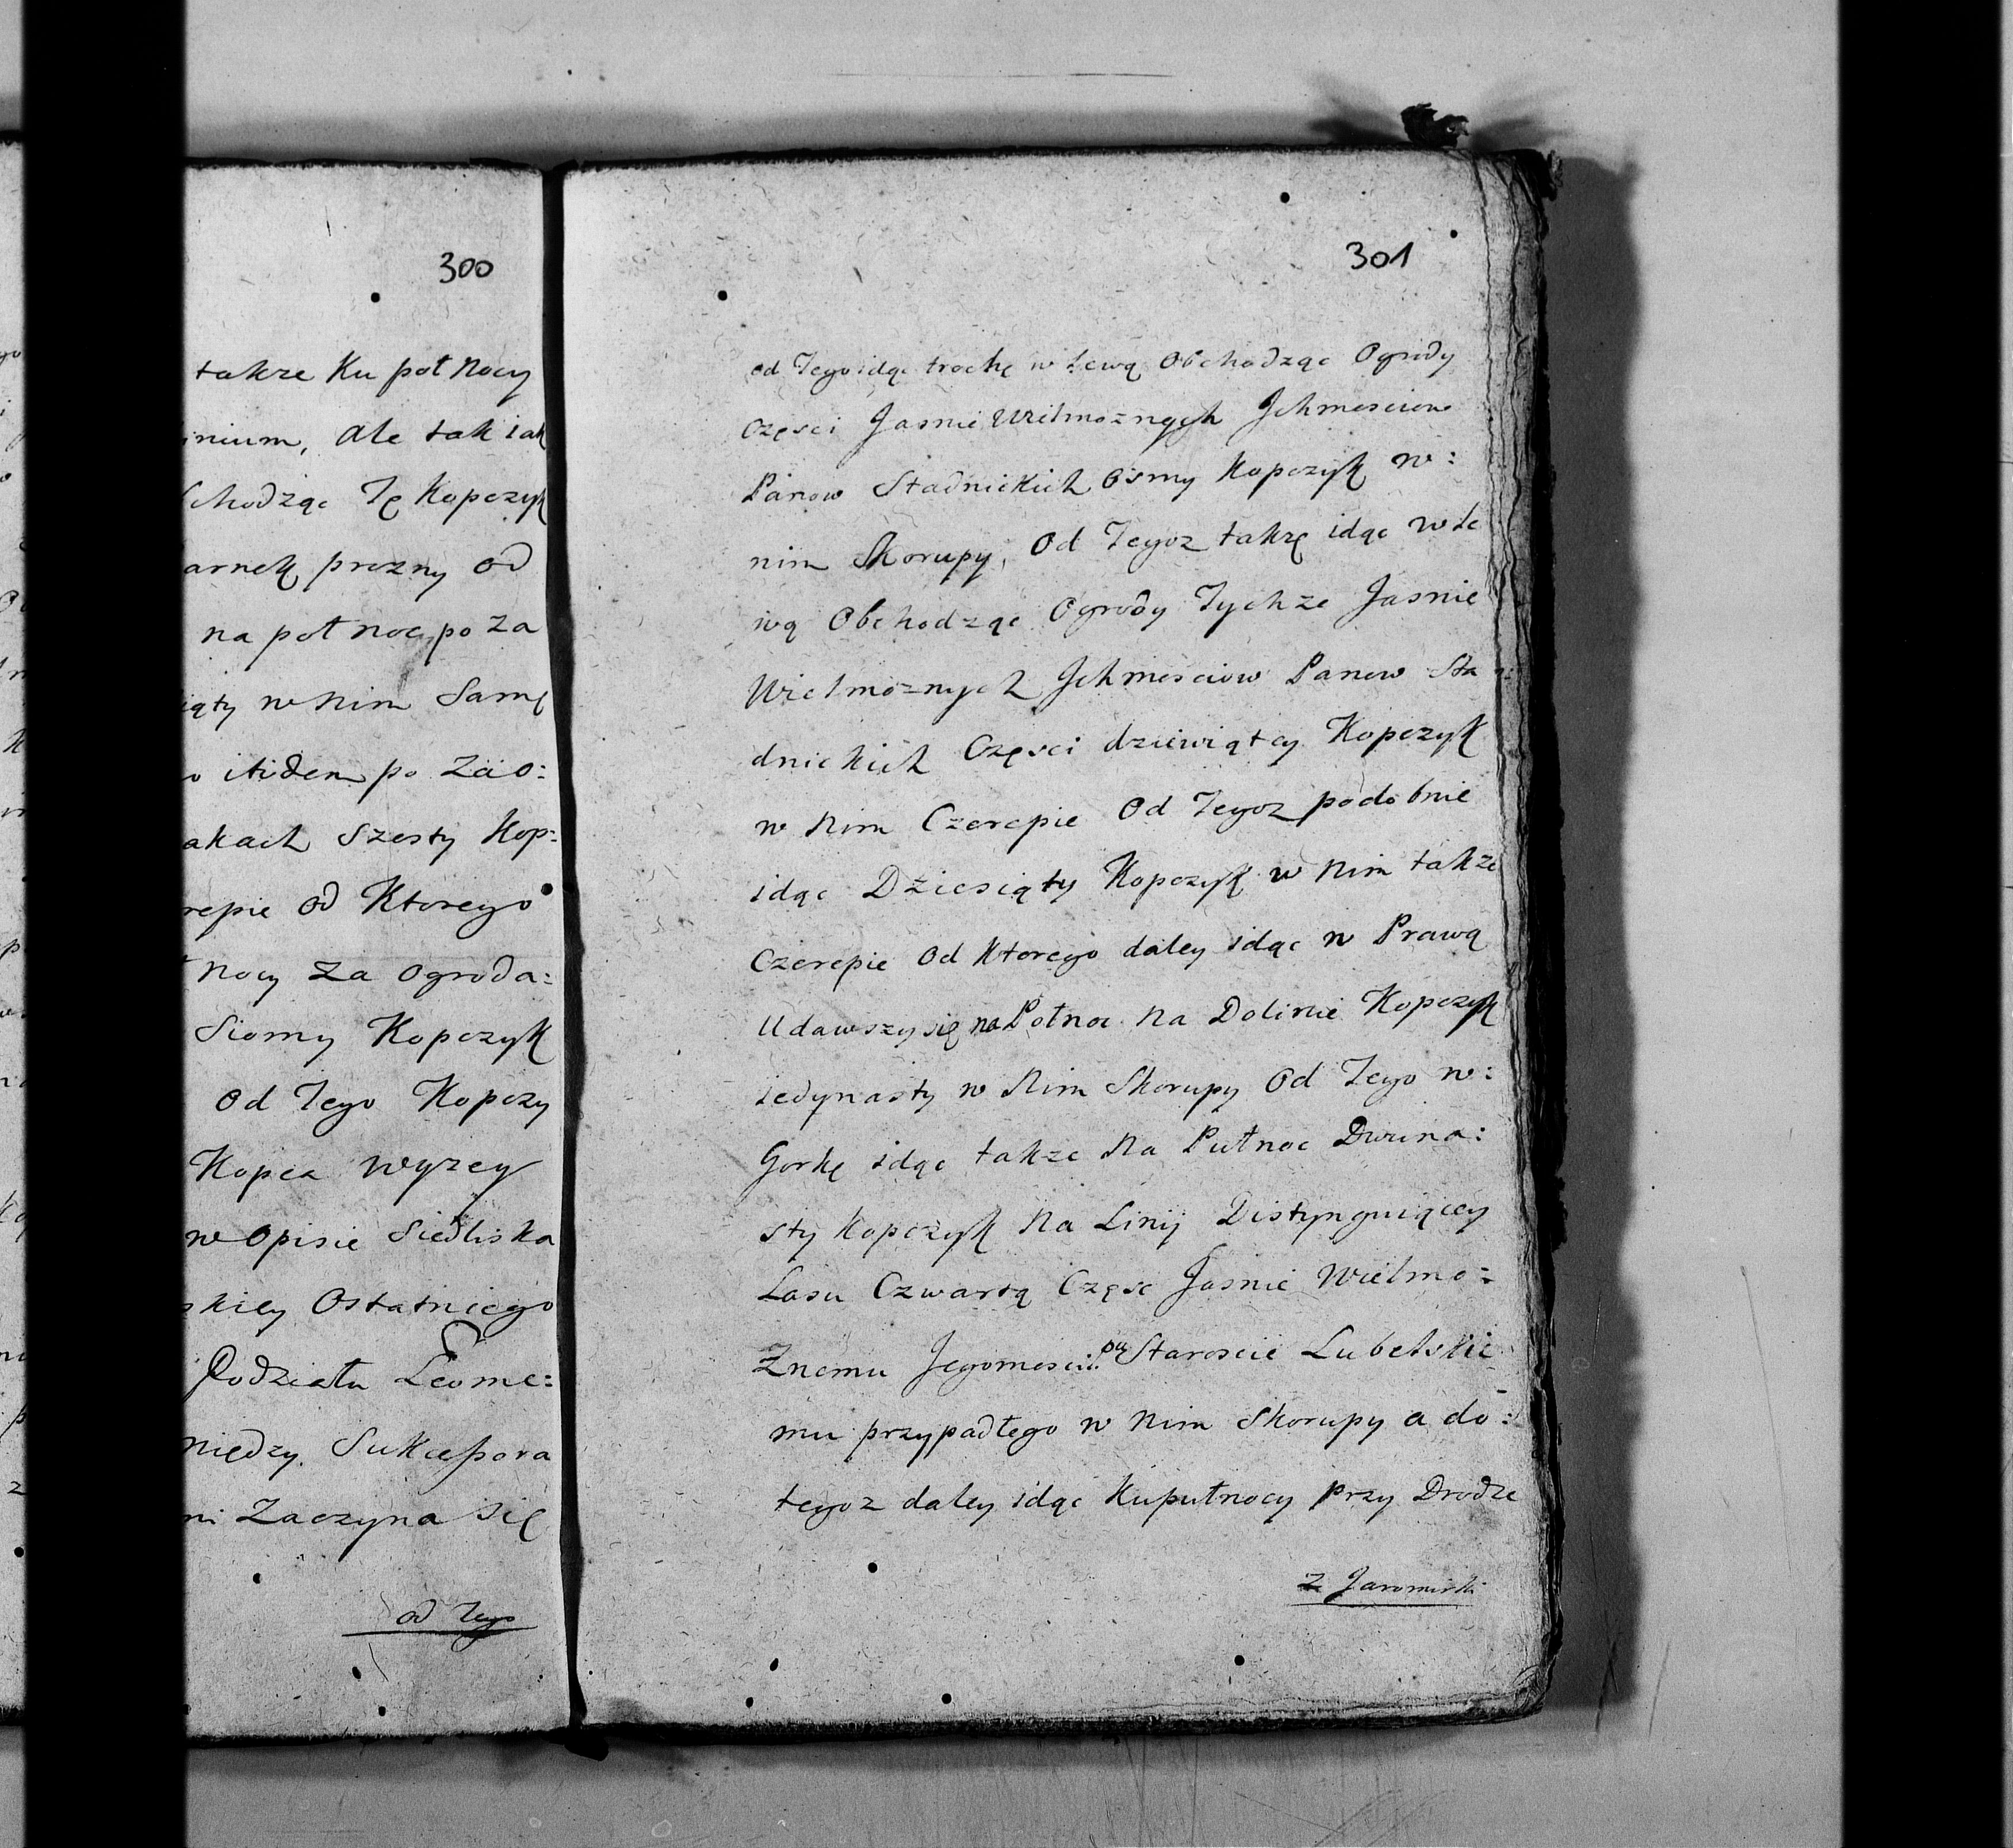 300
takze Ku połnocy
inium, ale tak iak
chodząc Tę Kopczyk
arnek prozny od
na połnoc po za
iąty w nim Samę
itidem po zao:
akach Szosty Kop:
repie od Ktorego
nocy za ogroda:
Siomy Kopczyk
od Tego Kopczy
Kopca wyzey
w opisie Siedliska
skiey Ostatniego
Podziału Leome:
między Sukcessora
mi Zaczyna się
od Tego
301
od Tego idąc trochę w Lewą Obchodząc Ogrody
Częsci JasnieWielmoznych Jchmosciow
Panow Stadnickich Osmy Kopczyk w:
nim Skorupy, Od Tegoz takzę idąc w Le
wą Obchodząc Ogrody Tychze Jasnie
Wielmoznych Jchmosciow Panow Sta:
dnickich Częsci dziewiątcy Kopczyk
w Nim Czerepie Od Tegoz podobnie
idąc Dziesiąty Kopczyk w Nim takze
Czerepie od Ktorego daley idąc w Prawą
Udawszy się na Połnoc Na Dolinie Kopczyk
iedynasty w Nim Skorupy Od Tego w:
Gorkę idąc takze Na Pułnoc Dwuna:
sty Kopczyk Na Linij Distyngwiącey
Lasu Czwartą Częsc Jasnie Wielmo:
Znemu Jegomosci Pu Staroscie Lubelskie
mu przypadłego w Nim Skorupy a do:
tegoz daley idąc Kupułnocy przy Drodze
z Jaromirki